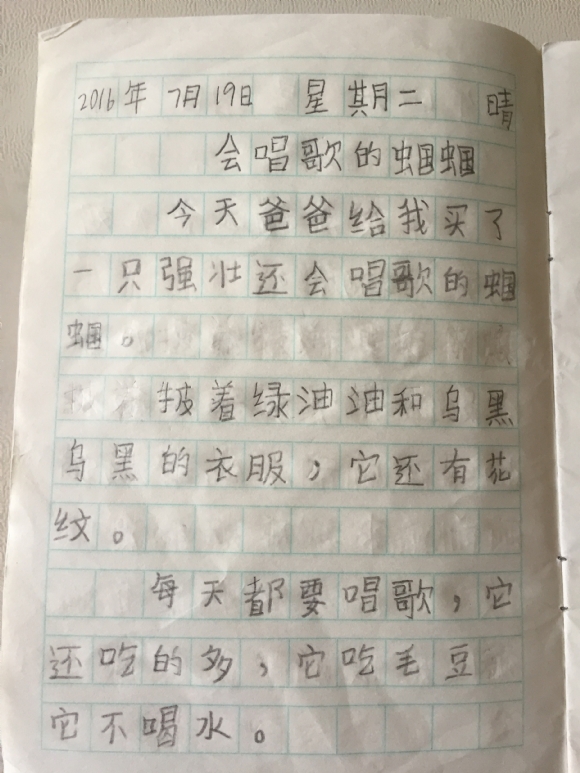 2016年 7月19日 星期二 晴
会唱歌的蝈蝈
今天爸爸给我买了
一只强壮还会唱歌的蝈
蝈。
披着绿油油和乌黑
乌黑的衣服，它还有花
纹。
每天都要唱歌，它
还吃的多，它吃毛豆
它不喝水。